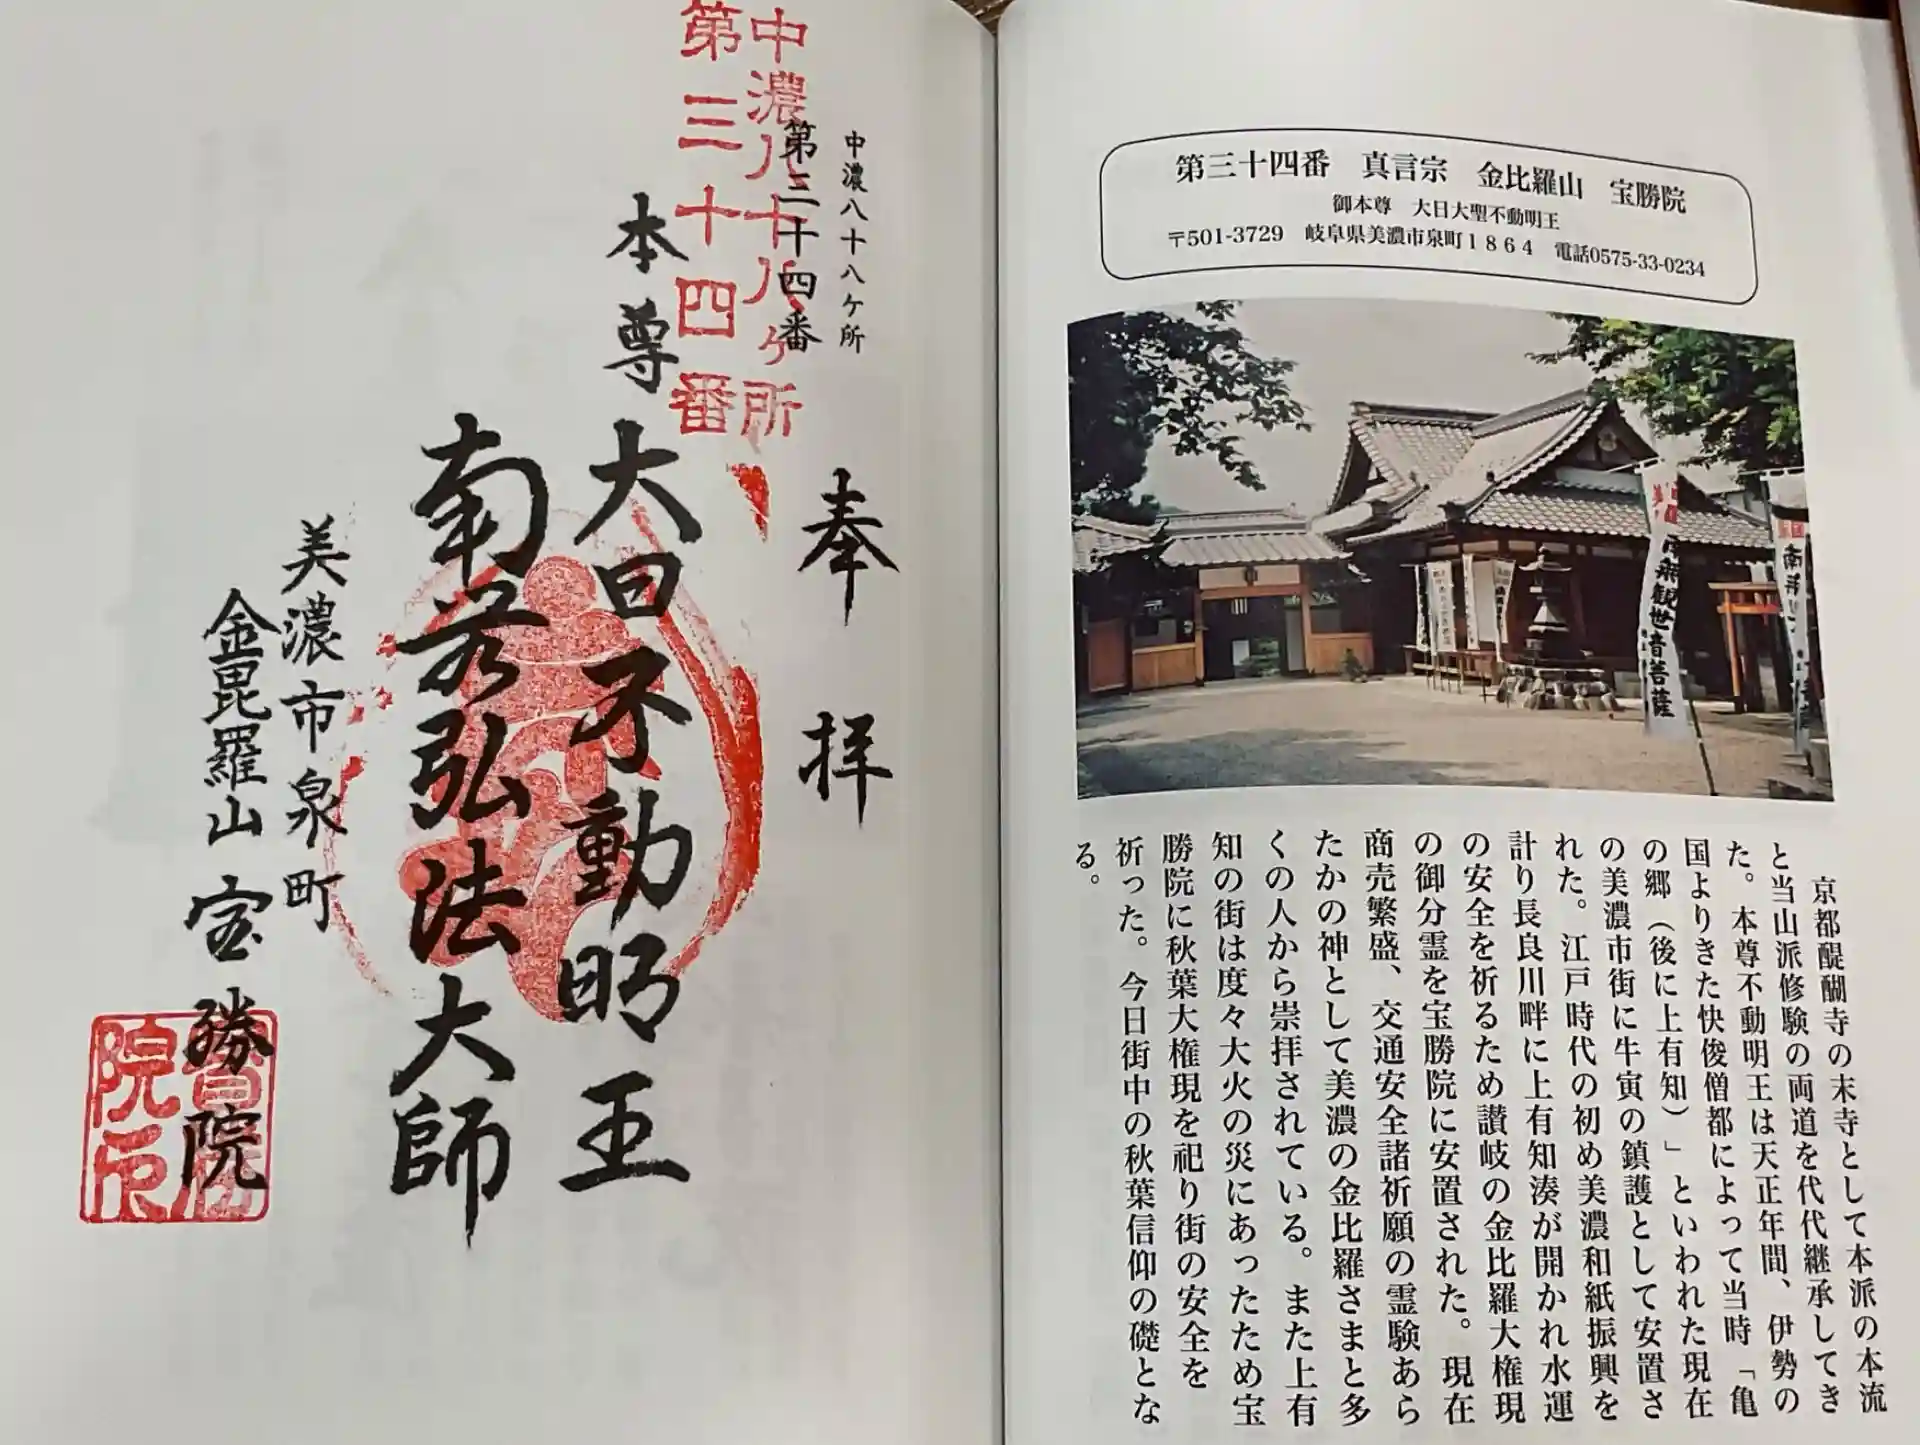 第三十四番　真言宗　金比羅山　宝勝院
御本尊　大日大聖不動明王
〒501-3729　岐阜県美濃市泉町１８６４　電話0575-33-0234
南無観世音菩薩
京都醍醐寺の末寺として本派の本流
と当山派修験の両道を代代継承してき
た。本尊不動明王は天正年間、伊勢の
国よりきた快俊僧都によって当時「亀
の郷（後に上有知）」といわれた現在
の美濃市街に牛寅の鎮護として安置さ
れた。江戸時代の初め美濃和紙振興を
計り長良川畔に上有知湊が開かれ水運
の安全を祈るため讃岐の金比羅大権現
の御分霊を宝勝院に安置された。現在
商売繁盛、交通安全諸祈願の霊験あら
たかの神として美濃の金比羅さまと多
くの人から崇拝されている。また上有
知の街は度々大火の災にあったため宝
勝院に秋葉大権現を祀り街の安全を
祈った。今日街中の秋葉信仰の礎とな
る。
中濃八十八ケ所
第三十四番
中濃八十八ヶ所
第三十四番
奉拝
本尊
大日不動明王
南無弘法大師
美濃市泉町
金毘羅山　宝勝院